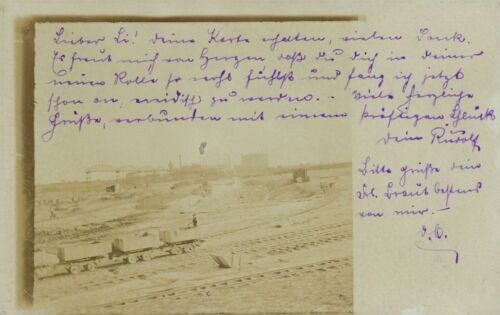 Lieber Li! Deine Karte erhalten, vielen Dank.
Es freut mich von Herzen, daß du dich in deiner
neuen Rolle so recht fühlst und fang ich jetzt
schon an, neidisch zu werden. – Viele herzliche
Grüße, verbunden mit einem kräftigen Glück
dein Rudolf
Bitte grüße deine
lb. Braut bestens
von mir. –